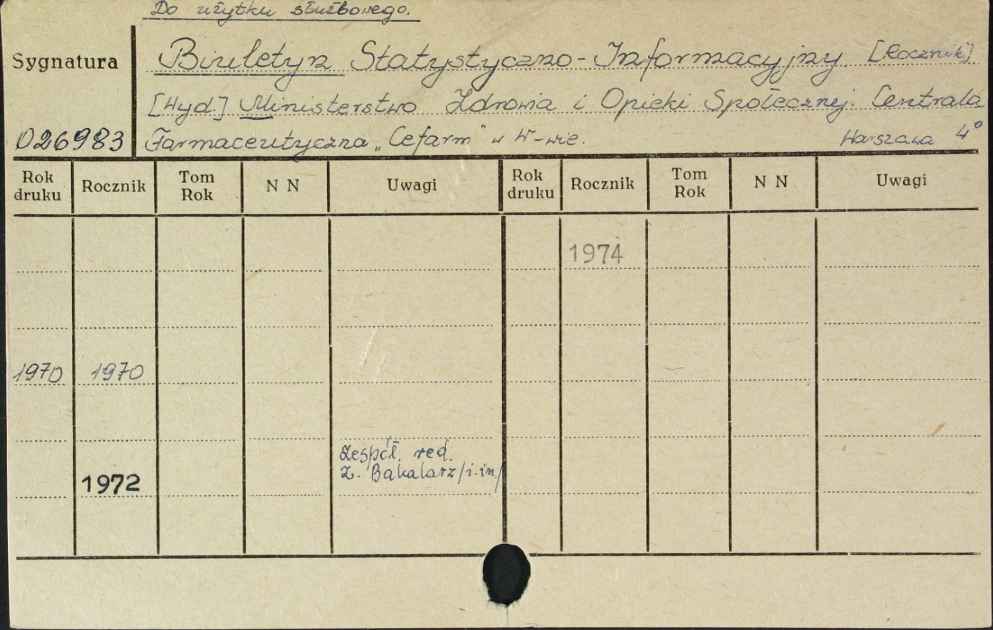 Do użytku służbowego.
Sygnatura
Biuletyn Statystyczno-Informacyjny [Rocznik]
[Wyd.] Ministerstwo Zdrowia i Opieki Społecznej. Centrala
026983 Farmaceutyczna "Cefarm" w W-wie. Warszawa 4°
Rok druku Rocznik Tom Rok N N Uwagi Rok druku Rocznik Tom Rok N N Uwagi
1974
1970 1970
Zespół red.
1972 Z. Bakalarz /i.in/